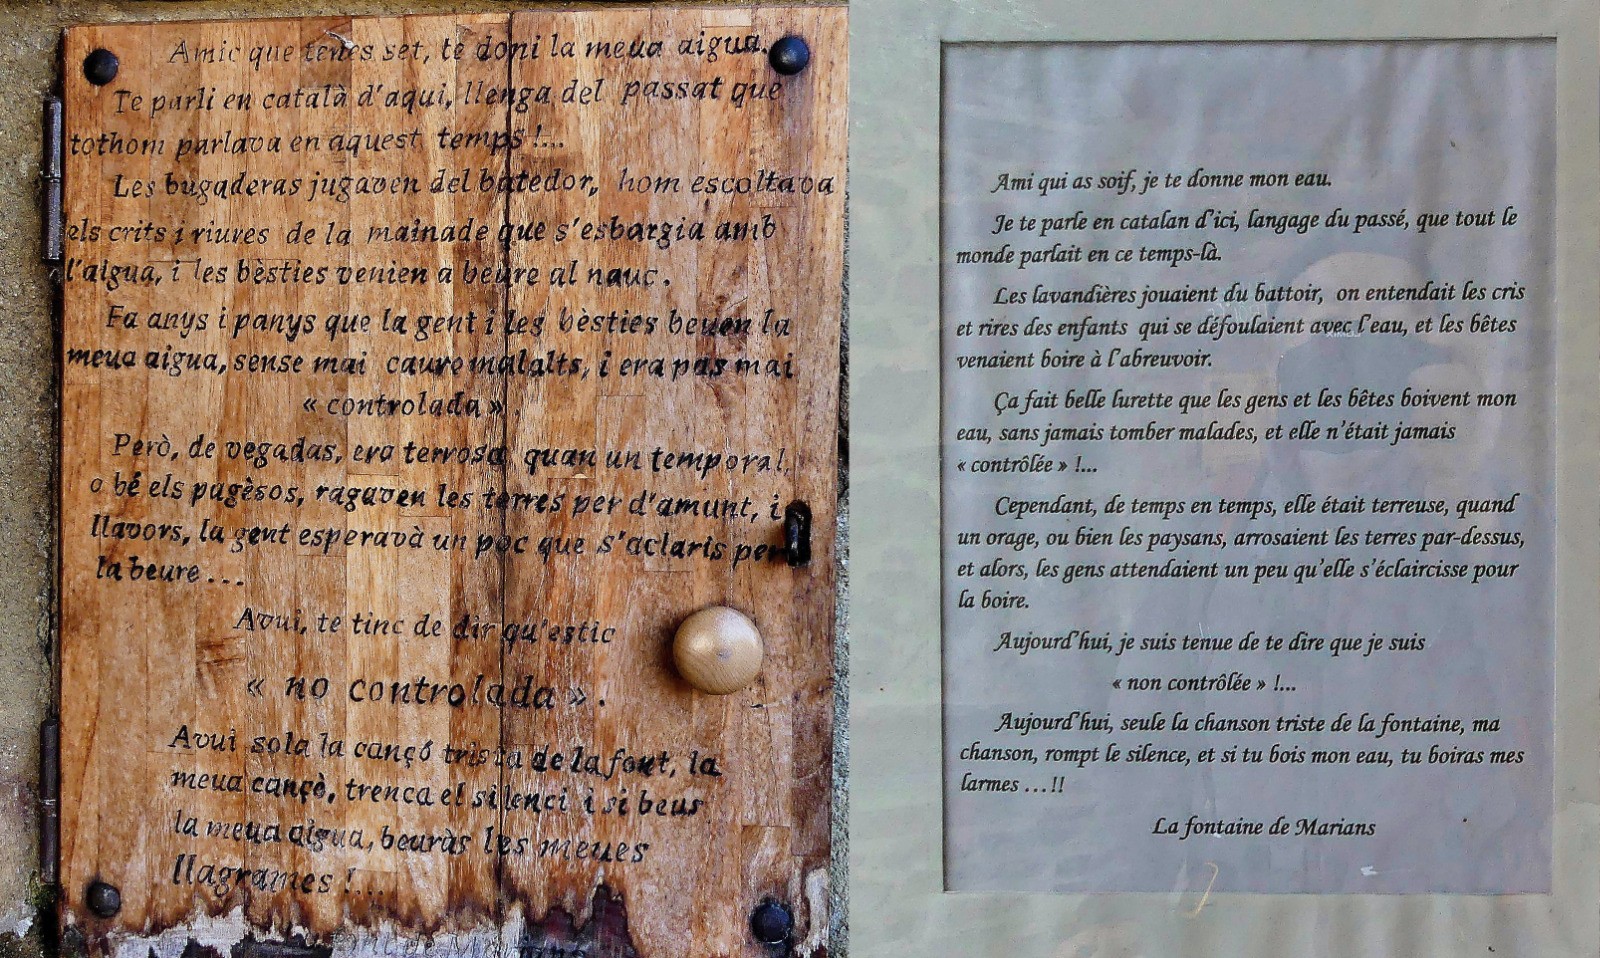 Amic que tenes set, te doni la meua aigua.
Te parli en català d'aqui, llenga del passat que
tothom parlava en aquest temps !...
Les bugaderas jugaven del batedor, hom escoltava
els crits i riures de la mainade que s'esbargia amb
l'aigua, i les bèsties venien a beure al nauc.
Fa anys i panys que la gent i les bèsties beuen la
meua aigua, sense mai caure malalts, i era pas mai
« controlada ».
Però, de vegadas, era terrosa quan un temporal,
o bé els pagèsos, ragaven les terres per d'amunt, i
llavors, la gent esperavà un poc que s'aclaris per
la beure ...
Avui, te tinc de dir qu'estic
« no controlada ».
Avui sola la cançó trista de la font, la
meua cançò, trenca el silenci i si beus
la meua aigua, beuràs les meues
llagrames !...
Ami qui as soif, je te donne mon eau.
Je te parle en catalan d'ici, langage du passé, que tout le
monde parlait en ce temps-là.
Les lavandières jouaient du battoir, on entendait les cris
et rires des enfants qui se défoulaient avec l'eau, et les bêtes
venaient boire à l'abreuvoir.
Ça fait belle lurette que les gens et les bêtes boivent mon
eau, sans jamais tomber malades, et elle n'était jamais
« contrôlée » !...
Cependant, de temps en temps, elle était terreuse, quand
un orage, ou bien les paysans, arrosaient les terres par-dessus,
et alors, les gens attendaient un peu qu'elle s'éclaircisse pour
la boire.
Aujourd'hui, je suis tenue de te dire que je suis
« non contrôlée » !...
Aujourd'hui, seule la chanson triste de la fontaine, ma
chanson, rompt le silence, et si tu bois mon eau, tu boiras mes
larmes ...!!
La fontaine de Marians